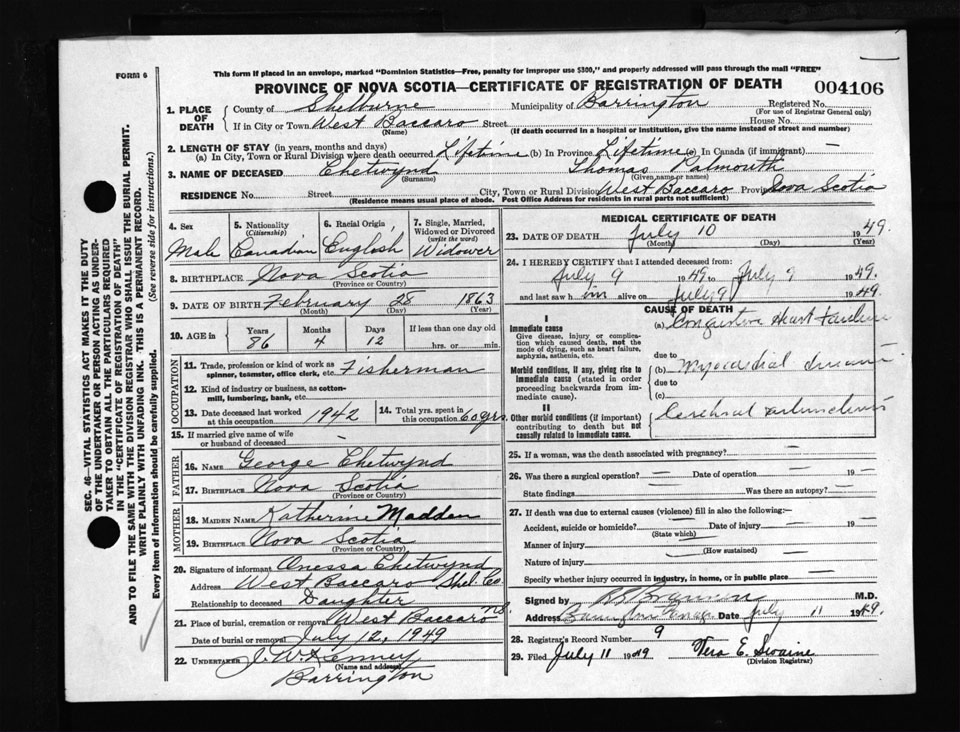 FORM 6
This form if placed in an envelope, marked "Dominion Statistics—Free, penalty for improper use $300," and properly addressed will pass through the mail "FREE"
PROVINCE OF NOVA SCOTIA—CERTIFICATE OF REGISTRATION OF DEATH
004106
1. PLACE OF DEATH
County of Shelburne Municipality of Barrington Registered No.
(For use of Registrar General only)
If in City or Town West Baccaro Street House No.
(Name) (If death occurred in a hospital or institution, give the name instead of street and number)
2. LENGTH OF STAY (in years, months and days)
(a) In City, Town or Rural Division where death occurred Lifetime (b) In Province Lifetime (c) In Canada (if immigrant) —
3. NAME OF DECEASED Chetwynd Thomas Palmouth
(Surname) (Given name or names)
RESIDENCE No. Street City, Town or Rural Division West Baccaro Province Nova Scotia
(Residence means usual place of abode. Post Office Address for residents in rural parts not sufficient)
SEC. 46—VITAL STATISTICS ACT MAKES IT THE DUTY
OF THE UNDERTAKER OR PERSON ACTING AS UNDER-
TAKER TO OBTAIN ALL THE PARTICULARS REQUIRED
IN THE "CERTIFICATE OF REGISTRATION OF DEATH"
AND TO FILE THE SAME WITH THE DIVISION REGISTRAR WHO SHALL ISSUE THE BURIAL PERMIT.
WRITE PLAINLY WITH UNFADING INK. THIS IS A PERMANENT RECORD.
Every item of information should be carefully supplied. (See reverse side for instructions.)
4. Sex
Male
5. Nationality
(Citizenship)
Canadian
6. Racial Origin
English
7. Single, Married,
Widowed or Divorced
(write the word)
Widower
8. BIRTHPLACE Nova Scotia
(Province or Country)
9. DATE OF BIRTH February 28 1863
(Month) (Day) (Year)
10. AGE in Years Months Days If less than one day old
86 4 12 hrs. or min.
OCCUPATION
11. Trade, profession or kind of work as
spinner, teamster, office clerk, etc. Fisherman
12. Kind of industry or business, as cotton-
mill, lumbering, bank, etc.
13. Date deceased last worked
at this occupation 1942
14. Total yrs. spent in
this occupation 60 yrs.
15. If married give name of wife
or husband of deceased —
FATHER
16. NAME George Chetwynd
17. BIRTHPLACE Nova Scotia
(Province or Country)
MOTHER
18. MAIDEN NAME Katherine Madden
19. BIRTHPLACE Nova Scotia
(Province or Country)
20. Signature of informant Anessa Chetwynd
Address West Baccaro Shel. Co.
Relationship to deceased Daughter
21. Place of burial, cremation or removal West Baccaro N.S.
Date of burial or removal July 12, 1949
22. UNDERTAKER J. W. Kenney
(Name and address)
Barrington
MEDICAL CERTIFICATE OF DEATH
23. DATE OF DEATH July 10 1949.
(Month) (Day) (Year)
24. I HEREBY CERTIFY that I attended deceased from:
July 9 1949 to July 9 1949.
and last saw him alive on July 9 1949.
CAUSE OF DEATH
I
Immediate cause
Give disease, injury or complica-
tion which caused death, not the
mode of dying, such as heart failure,
asphyxia, asthenia, etc.
(a) Congestive Heart Failure
due to
Morbid conditions, if any, giving rise to
immediate cause (stated in order
proceeding backwards from im-
mediate cause).
(b) Myocardial
due to
(c)
II
Other morbid conditions (if important)
contributing to death but not
causally related to immediate cause.
Cerebral
25. If a woman, was the death associated with pregnancy?
26. Was there a surgical operation? — Date of operation — 19 —
State findings Was there an autopsy? —
27. If death was due to external causes (violence) fill in also the following:—
Accident, suicide or homicide? Date of injury — 19 —
(State which)
Manner of injury
(How sustained)
Nature of injury
Specify whether injury occurred in industry, in home, or in public place —
Signed by M.D.
Address Date July 11 1949.
28. Registrar's Record Number 9
29. Filed July 11 1949 Vera E. Swaine
(Division Registrar)